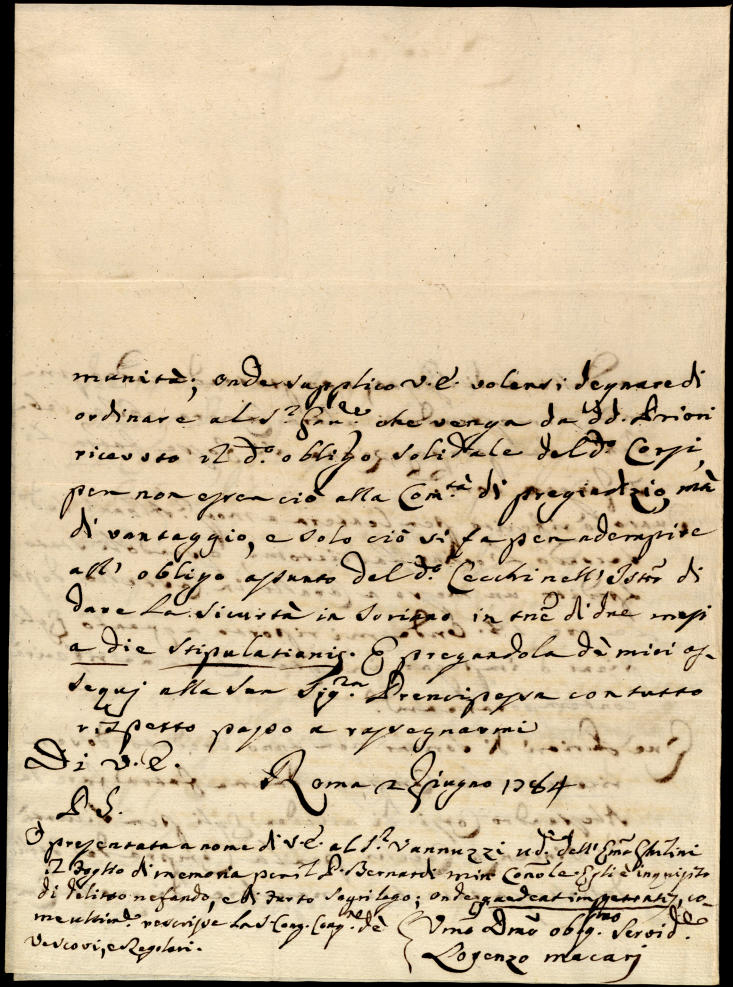 munità; onde supplico V. E. volersi degnare di
ordinare al S.r che venga da dd. Priori
ricevuto il d.o obligo solidale del d.o Corsi,
per non esser ciò alla Com.tà di pregiudizio, mà
di vantaggio, e solo ciò si fa per adempire
all' obligo assunto del d.o Cecchinelli Istro di
dare la sicurtà in Soriano in tne di due mesi
a die stipulationis. E pregandola dè miei os-
sequj alla Sua Sig.ra Prencipessa con tutto
rispetto passo a rassegnarmi
Di V. E.
Roma 2 Giugno 1784
P. S.
O presentata a nome di V. E. al S.r Vannuzzi ud.re dell' Emo Ghilini
il foglio di memoria per il P. Bernardi min. Conōle. Egli è inquisito
di delitto nefando, e di furto sagrilego; onde co-
me rescrisse la S. Cong. dè
Vescovi, e Regolari.
Vmo Dmo oblig. Servid.e
Lorenzo Macarj